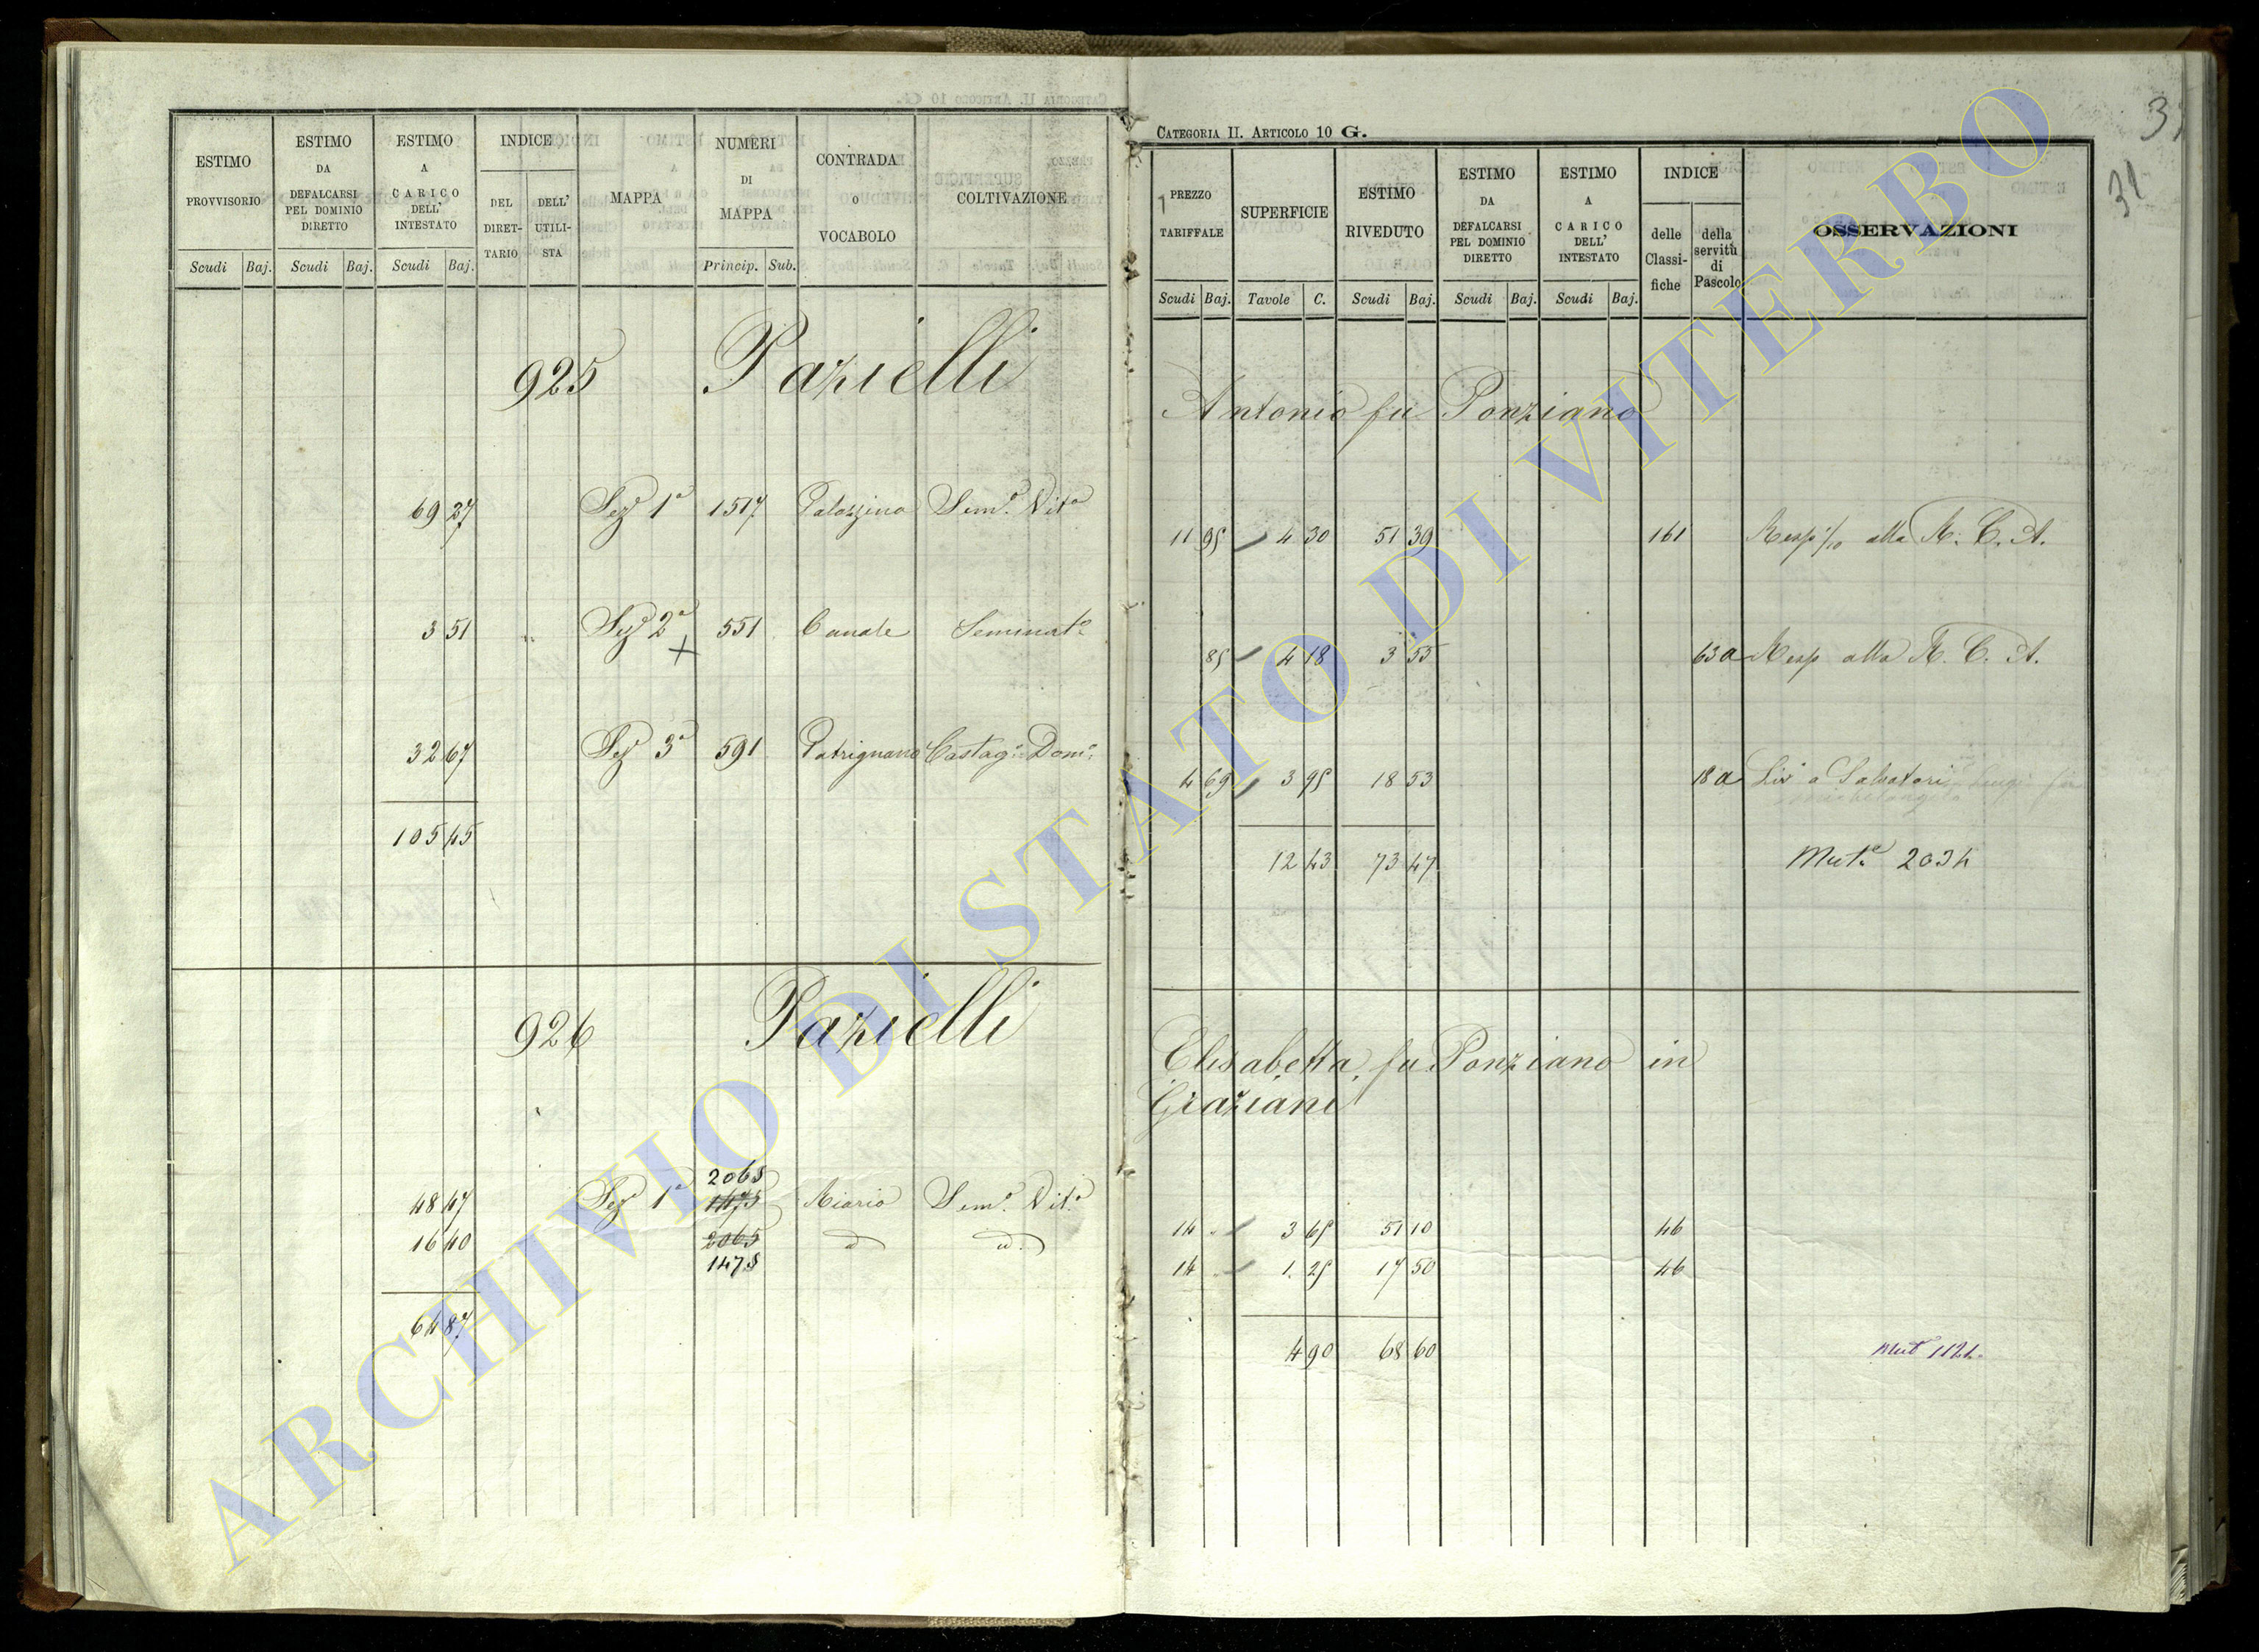 ESTIMO PROVVISORIO
ESTIMO DA DEFALCARSI PEL DOMINIO DIRETTO
ESTIMO A CARICO DELL' INTESTATO
INDICE
DEL DIRET-TARIO
DELL' UTILI-STA
MAPPA
NUMERI DI MAPPA
CONTRADA O VOCABOLO
COLTIVAZIONE
Scudi Baj. Scudi Baj. Scudi Baj. Princip. Sub.
925 Pazielli
69 27 Sez 1ª 1517 Palazzina Sem.º Vitº
3 51 " Sez 2ª 551 Canale Seminatº
32 67 Sez 3ª 591 Patrignano Castagº Domº
105 45
926 Pazielli
2068
48 47 Sez 1ª 1475 Riario Sem.º Vit.º
16 40 2065 d d.
1478
64 87
CATEGORIA II. ARTICOLO 10 G.
31
31
PREZZO TARIFFALE
SUPERFICIE
ESTIMO RIVEDUTO
ESTIMO DA DEFALCARSI PEL DOMINIO DIRETTO
ESTIMO A CARICO DELL' INTESTATO
INDICE
delle Classi-fiche
della servitù di Pascolo
OSSERVAZIONI
Scudi Baj. Tavole C. Scudi Baj. Scudi Baj. Scudi Baj.
Antonio fu Ponziano
11 95 4 30 51 39 161 Resp 1/10 alla R. C. A.
85 4 18 3 55 63a Resp alla R. C. A.
4 69 3 95 18 53 18a Livº a Salvatori Luigi fu
Michelangelo
12 43 73 47 Mutª 2034
Elisabetta fu Ponziano in
Graziani
14 . 3 65 51 10 46
14 . 1. 25 17 50 46
4 90 68 60 Mutª 1121.
ARCHIVIO DI STATO DI VITERBO